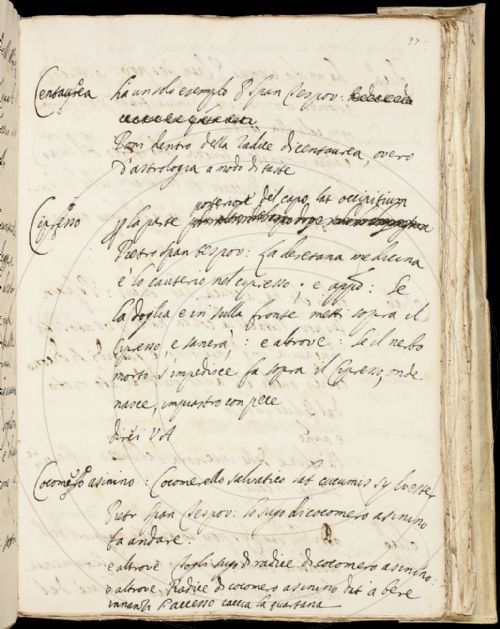 97.
Centaurea ha un solo esempio P: Span Tespov:
Poni dentro della radice di centaurea, overo
d'astrologia a modo di taste
Cipresso p la parte posteriore del capo, lat occipitium
Pietro Span Tespov: La deretana medicina
è lo cauterio nel cipresso; e app.o: Se
la doglia e in sulla fronte metti sopra il
Cipresso, e sanerà: e altrove: Se il nerbo
morto s'impedisce fa sopra il Cipresso, onde
nasce, impiastro con pece
direi VA
Cocomero asinino: Cocomerello salvatico lat cucumis sylvester
Pietr Span Tespov: lo sugo di cocomero asinino
fa andare:
e altrove togli sugo di radice di cocomero asinino:
e altrove. Radice di cocomero asinino dit a bere
innanzi l'accesso caccia la quartana